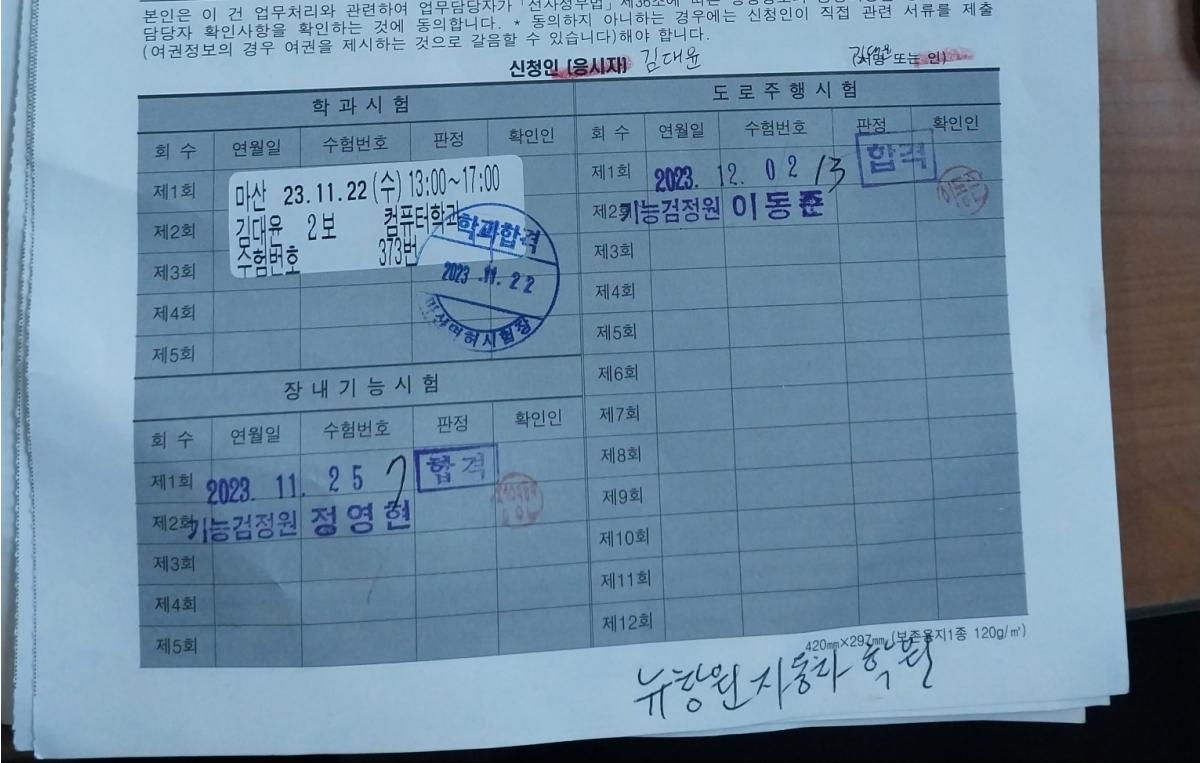 본인은 이 건 업무처리와 관련하여 업무담당자가 「전자정부법」 제36조에 따른
담당자 확인사항을 확인하는 것에 동의합니다. * 동의하지 아니하는 경우에는 신청인이 직접 관련 서류를 제출
(여권정보의 경우 여권을 제시하는 것으로 갈음할 수 있습니다)해야 합니다.
신청인 [응시자] 김대윤 (서명 또는 인)
학과시험
회 수 연월일 수험번호 판정 확인인
제1회
마산 23.11.22(수) 13:00~17:00
제2회
김대윤 2보 컴퓨터학과
수험번호 373번
제3회
제4회
제5회
학과합격
2023.11.22
마산면허시험장
장내기능시험
회 수 연월일 수험번호 판정 확인인
제1회 2023. 11. 25 7 합격
제2회 기능검정원 정영현
제3회
제4회
제5회
도로주행시험
회 수 연월일 수험번호 판정 확인인
제1회 2023. 12. 02 13 합격
제2회 기능검정원 이동준
제3회
제4회
제5회
제6회
제7회
제8회
제9회
제10회
제11회
제12회
420㎜×297㎜(보존용지1종 120g/㎡)
뉴창원자동차